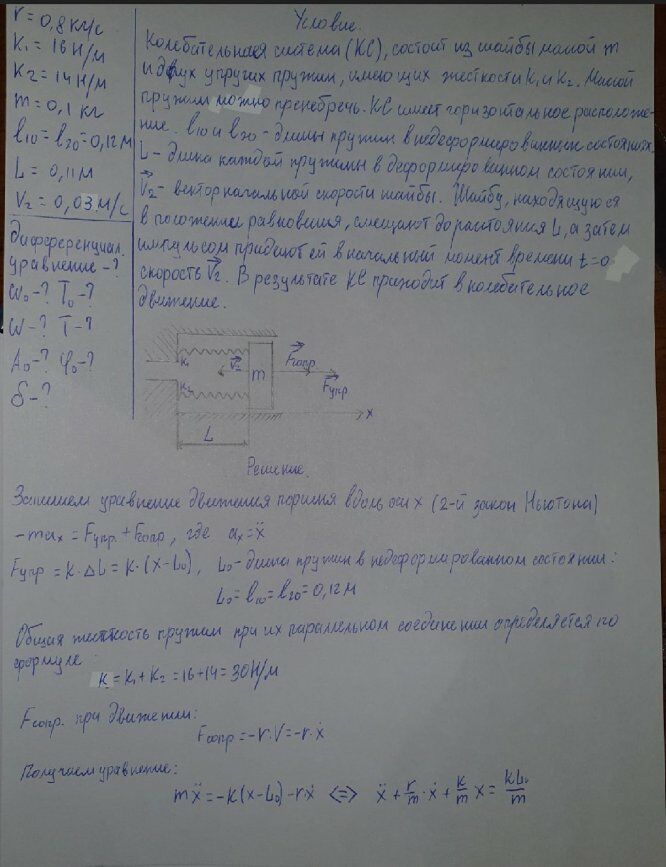 r = 0,8 кг/с
K₁ = 16 Н/м
K₂ = 14 Н/м
m = 0,1 кг
l₁₀ = l₂₀ = 0,12 м
L = 0,11 м
V₂ = 0,03 м/с
дифференциал.
уравнение - ?
ω₀ - ? T₀ - ?
ω - ? T - ?
A₀ - ? φ₀ - ?
δ - ?
Условие.
Колебательная система (КС), состоит из шайбы массой m
и двух упругих пружин, имеющих жесткости K₁ и K₂. Массой
пружин можно пренебречь. КС имеет горизонтальное расположе-
ние. l₁₀ и l₂₀ - длины пружин в недеформированных состояниях
L - длина каждой пружины в деформированном состоянии,
V₂ - вектор начальной скорости шайбы. Шайбу, находящуюся
в положении равновесия, смещают до расстояния L, а затем
импульсом придают ей в начальный момент времени t = 0
скорость V₂. В результате КС приходит в колебательное
движение.
K₁ V₂ m Fсопр.
K₂ Fупр
L x
Решение.
Запишем уравнение движения поршня вдоль оси x (2-й закон Ньютона)
-maₓ = Fупр. + Fсопр, где aₓ = ẍ
Fупр = K · ΔL = K · (x - L₀), L₀ - длина пружин в недеформированном состоянии:
L₀ = l₁₀ = l₂₀ = 0,12 м
Общая жесткость пружин при их параллельном соединении определяется по
формуле
K = K₁ + K₂ = 16 + 14 = 30 Н/м
Fсопр. при движении:
Fсопр = -r · V = -r · ẋ
Получаем уравнение:
mẍ = -K(x - L₀) - r · ẋ <=> ẍ + r/m · ẋ + k/m x = kL₀/m